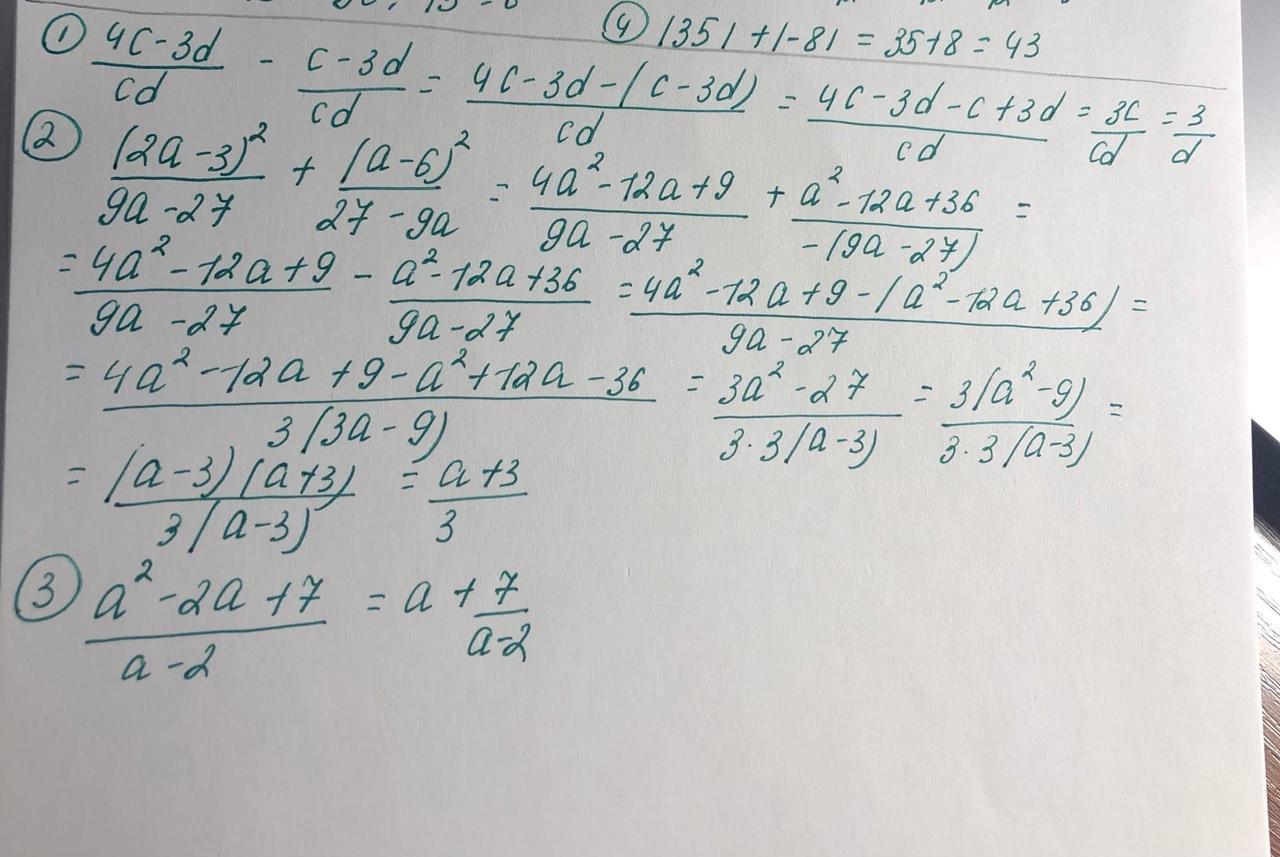 ④ |35| + |-8| = 35+8 = 43
① (4c-3d)/cd - (c-3d)/cd = (4c-3d-(c-3d))/cd = (4c-3d-c+3d)/cd = 3c/cd = 3/d
② (2a-3)²/(9a-27) + (a-6)²/(27-9a) = (4a²-12a+9)/(9a-27) + (a²-12a+36)/(-(9a-27)) =
= (4a²-12a+9)/(9a-27) - (a²-12a+36)/(9a-27) = (4a²-12a+9-(a²-12a+36))/(9a-27) =
= (4a²-12a+9-a²+12a-36)/(3(3a-9)) = (3a²-27)/(3·3(a-3)) = 3(a²-9)/(3·3(a-3)) =
= (a-3)(a+3)/(3(a-3)) = (a+3)/3
③ (a²-2a+7)/(a-2) = a + 7/(a-2)